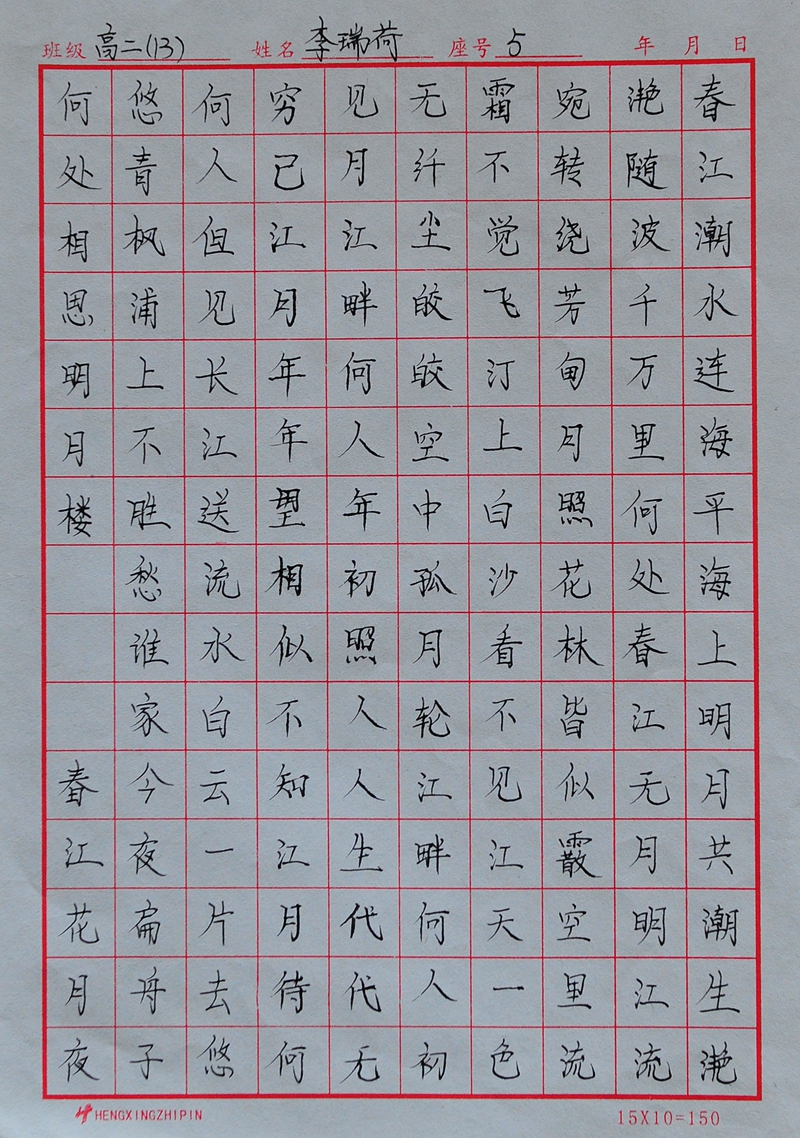 班级 高二(13) 姓名 李瑞荷 座号 5 年 月 日
春江潮水连海平海上明月共潮生滟
滟随波千万里何处春江无月明江流
宛转绕芳甸月照花林皆似霰空里流
霜不觉飞汀上白沙看不见江天一色
无纤尘皎皎空中孤月轮江畔何人初
见月江畔何人年初照人人生代代无
穷已江月年年望相似不知江月待何
何人但见长江送流水白云一片去悠
悠青枫浦上不胜愁谁家今夜扁舟子
何处相思明月楼 春江花月夜
HENGXINGZHIPIN
15X10=150